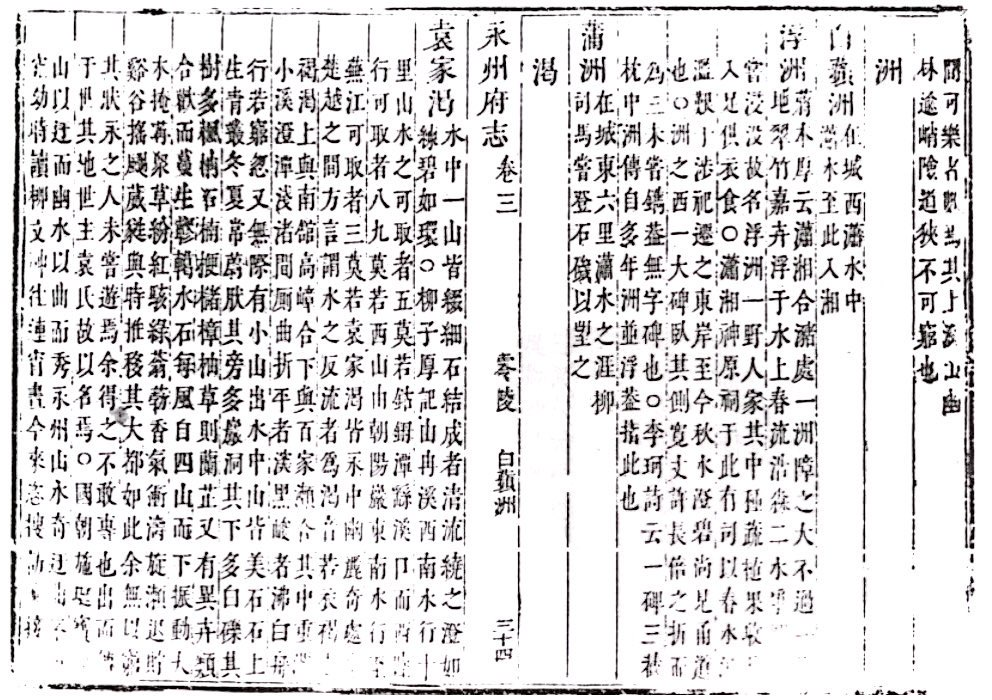 林逾峭險道狹不可窮也
洲
白蘋洲在城西瀟水中
瀟水至此入湘
浮洲
云瀟湘合瀦處一洲障之大不過一
地翠竹嘉卉浮于水上春流浩淼二水
浸沒故名浮洲一野人家其中種蔬植果收
入足供衣食○瀟湘神原祠于此有司以春水
濫艱于涉祀遷之東岸至今秋水澄碧尚見甬道
也○洲之西一大碑臥其側寬丈許長倍之折而
為三木嘗鐫蓋無字碑也○李珂詩云一碑三巷
枕中洲傳自多年洲並浮蓋指此也
蒲洲在城東六里瀟水之涯柳
司馬嘗登石磯以望之
渴
永州府志 卷三 零陵 白蘋洲 三十四
袁家渴水中一山皆綴細石結成者清流繞之澄如
練碧如環○柳子厚記由冉溪西南水行十
里山水之可取者五莫若鈷鉧潭繇溪口而西陸
行可取者八九莫若西山由朝陽巖東南水行至
蕪江可取者三莫若袁家渴皆永中幽麗奇處
楚越之間方言謂水之反流者為渴音若衣褐之
褐渴上與南館高嶂合下與百家瀨合其中重
小溪澄潭淺渚間厠曲折平者深黑峻者沸白舟
行若窮忽又無際有小山出水中山皆美石石上
生青叢冬夏常蔚肰其旁多巖洞其下多白礫其
樹多楓柟石楠楩櫧樟柚草則蘭芷又有異卉類
合歡而蔓生轇轕水石每風自四山而下振動大
木掩苒眾草紛紅駭綠蓊葧香氣衝濤旋瀨退貯
谿谷搖颺葳蕤與時推移其大都如此余無以窮
其狀永之人未嘗遊焉余得之不敢專也出而傳
于世其地世主袁氏故以名焉○國朝
山以迂而幽水以曲而秀永州山水奇迂
幼時讀柳文神往連宵晝今來恣搜